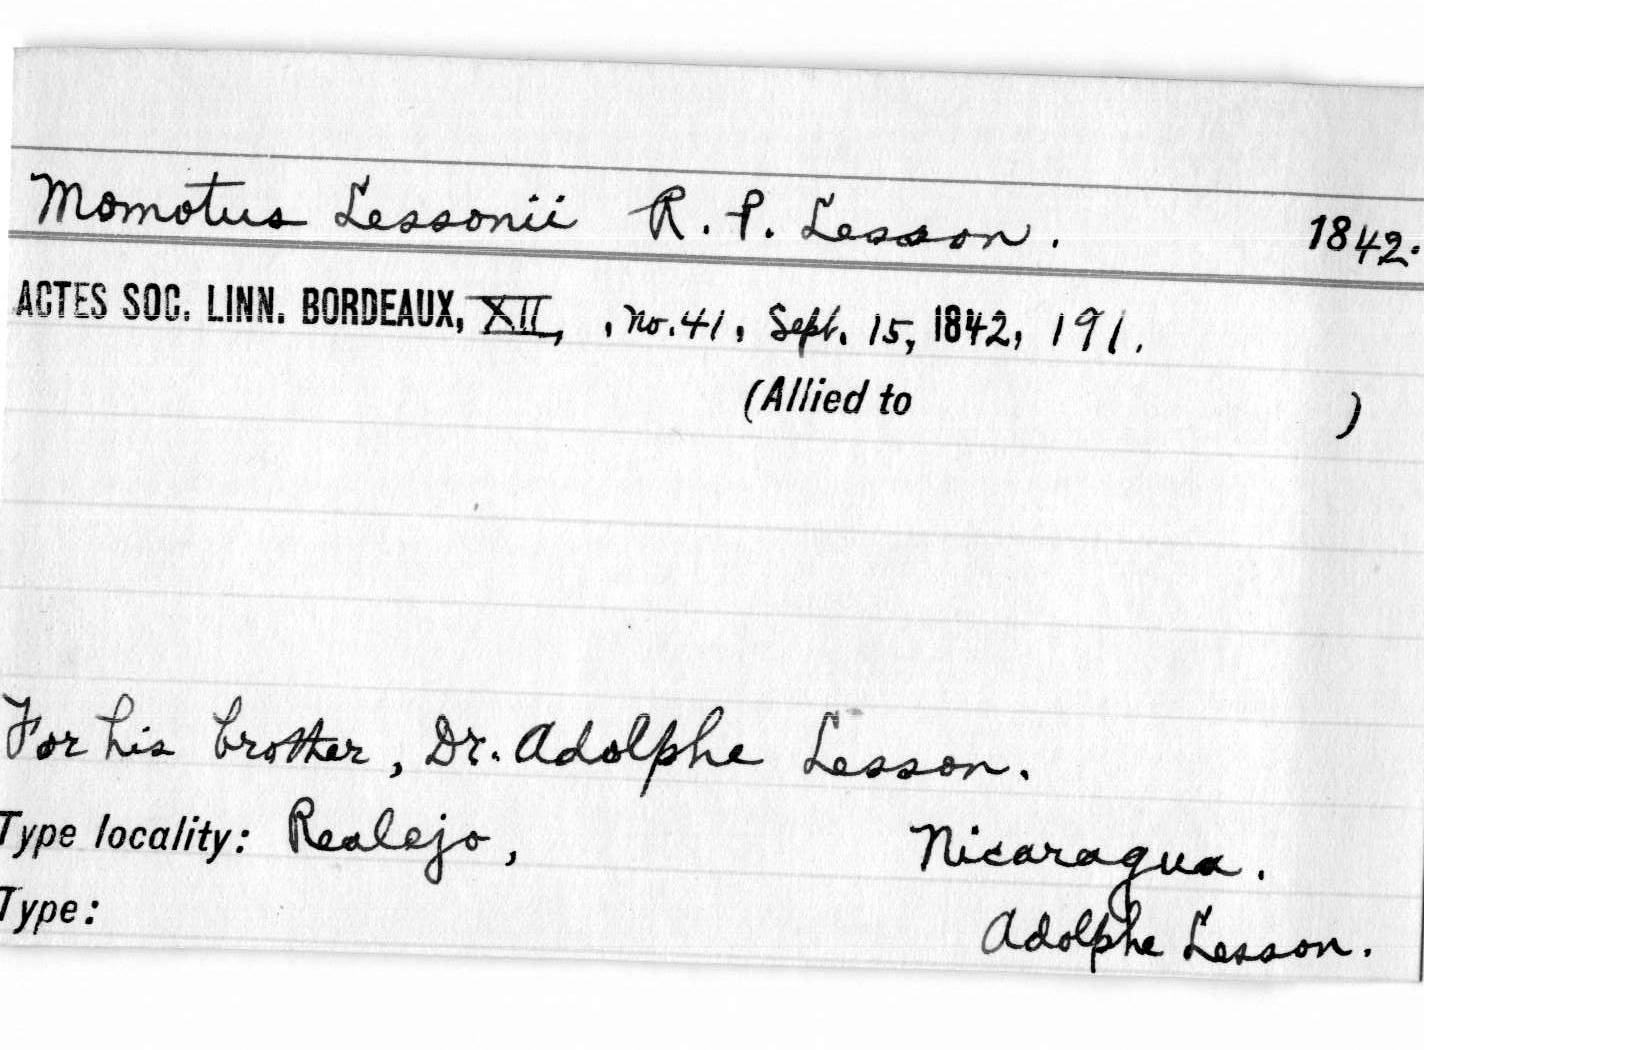 Momotus Lessonii R. P. Lesson. 1842.
ACTES SOC. LINN. BORDEAUX, XII, , no. 41, Sept. 15, 1842, 191.
(Allied to )
For his brother, Dr. Adolphe Lesson.
Type locality: Realejo, Nicaragua.
Type: Adolphe Lesson.